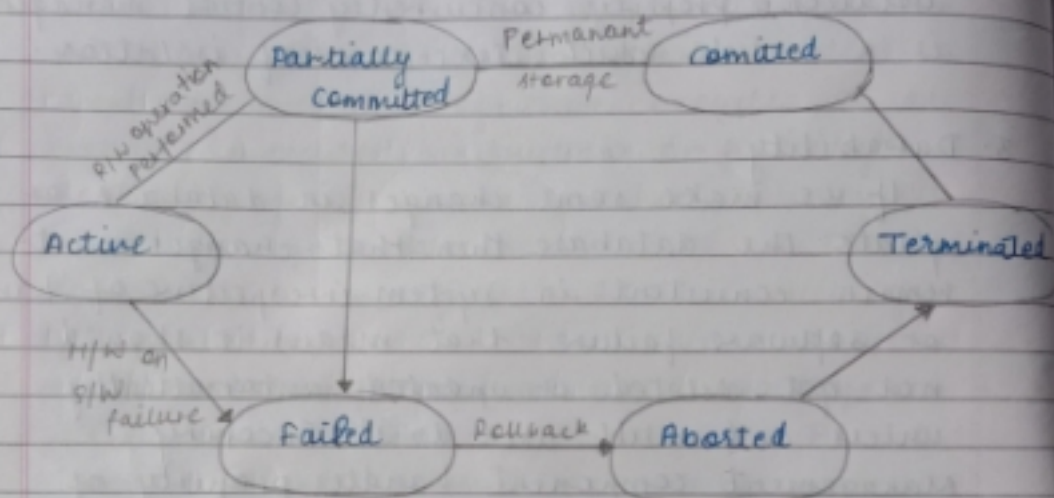 Partially
Committed
Permanant
storage
Comitted
R/W operation
performed
Active
Terminated
H/W or
S/W
failure
Failed
Rollback
Aborted